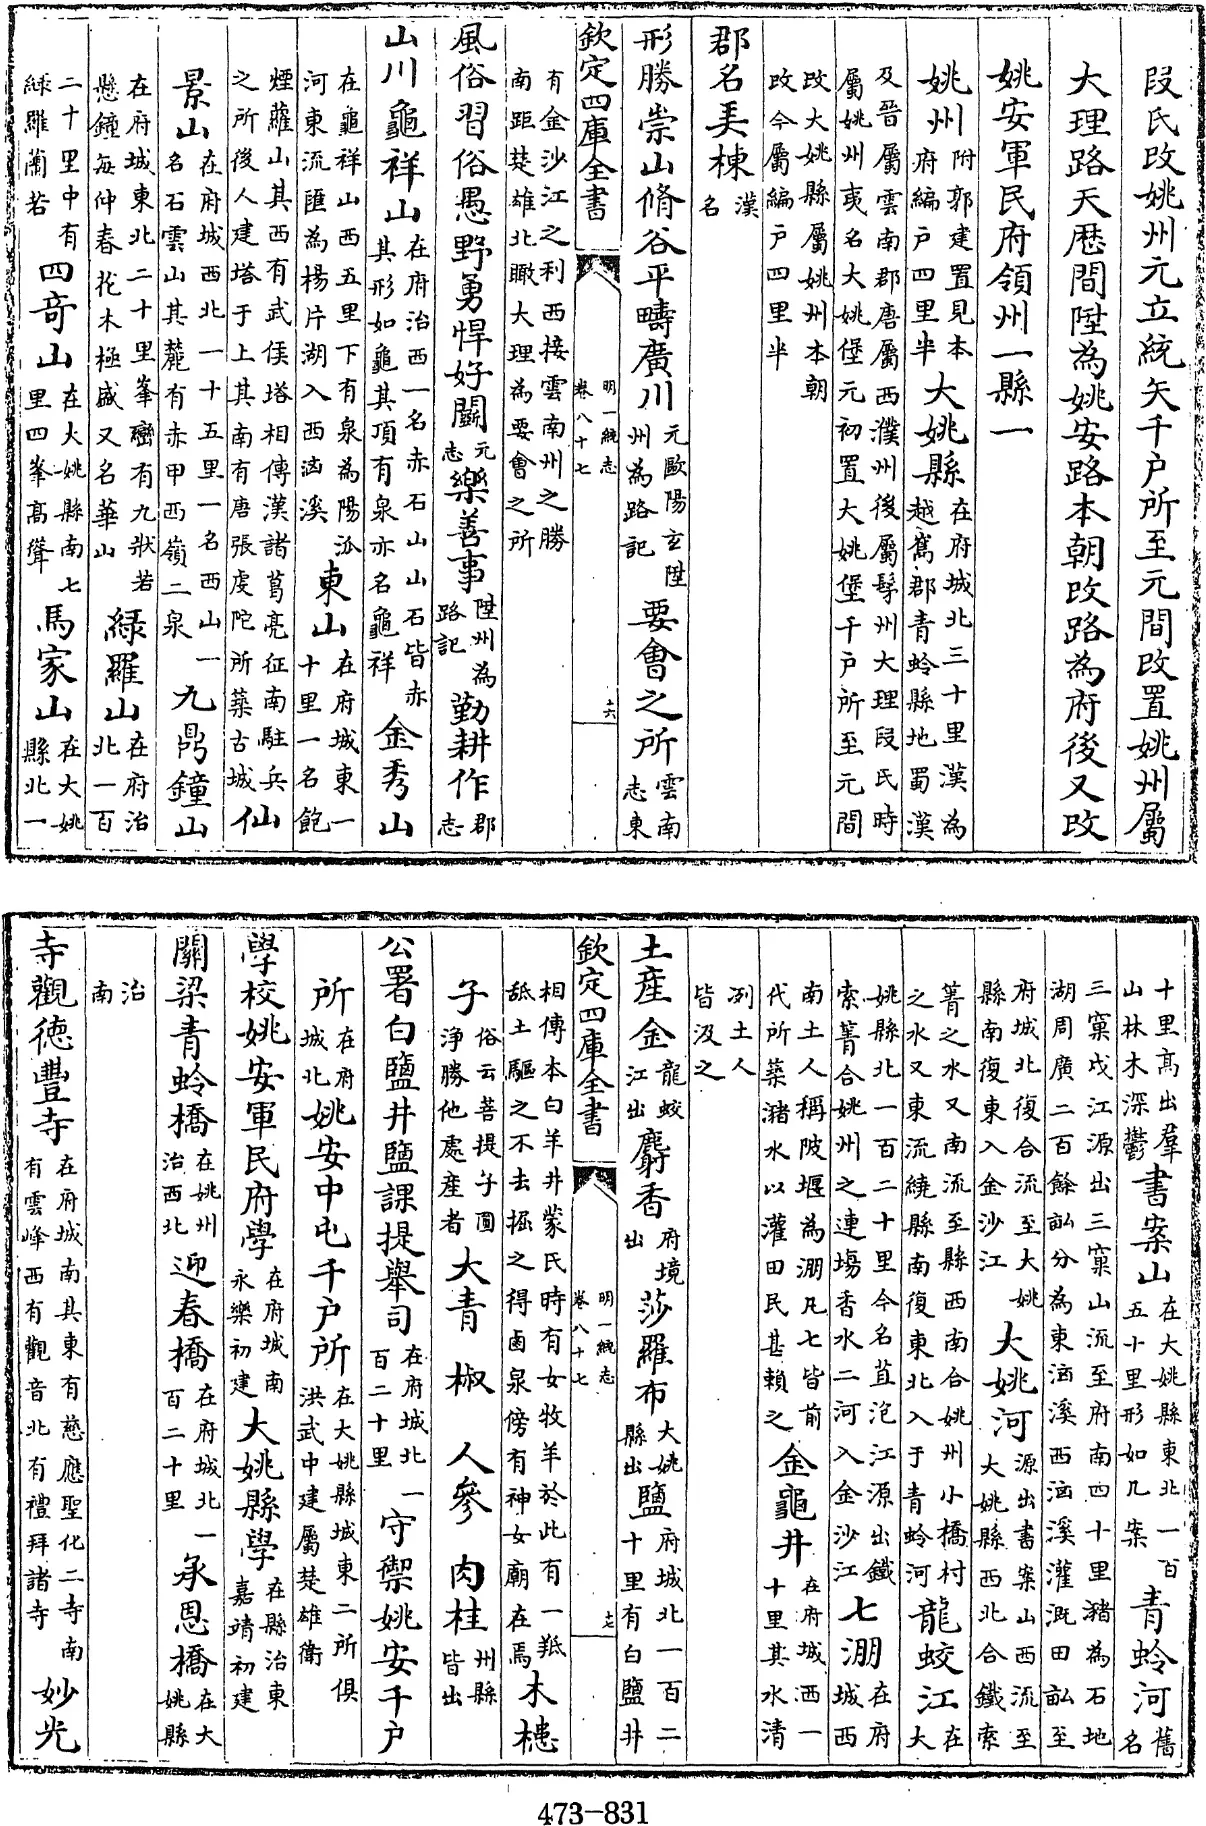 段氏改姚州元立統矢千户所至元間改置姚州屬
大理路天厯間陞為姚安路本朝改路為府後又改
姚安軍民府領州一縣一
姚州附郭建置見本府編户四里半大姚縣在府城北三十里漢為越嶲郡青蛉縣地蜀漢
及晉屬雲南郡唐屬西濮州後屬髳州大理段氏時屬姚州夷名大姚堡元初置大姚堡千户所至元間
改大姚縣屬姚州本朝改今屬編户四里半
郡名弄棟漢名
形勝崇山脩谷平疇廣川元歐陽玄陞州為路記要會之所雲南志東
欽定四庫全書
明一統志
卷八十七
十六
有金沙江之利西接雲南州之勝南距楚雄北瞰大理為要會之所
風俗習俗愚野勇悍好鬬元志樂善事陞州為路記勤耕作郡志
山川龜祥山在府治西一名赤石山山石皆赤其形如龜其頂有泉亦名龜祥金秀山
在龜祥山西五里下有泉為陽派河東流匯為楊片湖入西㴠溪東山在府城東一十里一名飽
煙蘿山其西有武侯塔相傳漢諸葛亮征南駐兵之所後人建塔于上其南有唐張虔陀所築古城仙
景山在府城西北一十五里一名西山一名石雲山其麓有赤甲西嶺二泉九鼎鐘山
在府城東北二十里峯巒有九狀若懸鐘每仲春花木極盛又名華山緑羅山在府治北一百
二十里中有緑羅蘭若四竒山在大姚縣南七里四峯髙聳馬家山在大姚縣北一
十里髙出羣山林木深鬱書案山在大姚縣東北一百五十里形如几案青蛉河舊名
三窠戍江源出三窠山流至府南四十里豬為石地湖周廣二百餘畝分為東㴠溪西㴠溪灌溉田畝至
府城北復合流至大姚縣南復東入金沙江大姚河源出書案山西流至大姚縣西北合鐵索
箐之水又南流至縣西南合姚州小橋村之水又東流繞縣南復東北入于青蛉河龍蛟江在大
姚縣北一百二十里今名苴泡江源出鐵索箐合姚州之連塲香水二河入金沙江七淜在府城西
南土人稱陂堰為淜凡七皆前代所築豬水以灌田民甚賴之金龜井在府城西一十里其水清
冽土人皆汲之
土産金龍蛟江出麝香府境出莎羅布大姚縣出鹽府城北一百二十里有白鹽井
欽定四庫全書
明一統志
卷八十七
十七
相傳本白羊井蒙氏時有女牧羊於此有一羝舐土驅之不去掘之得鹵泉傍有神女廟在焉木槵
子俗云菩提子圓淨勝他處産者大青　椒　人參　肉桂州縣皆出
公署白鹽井鹽課提舉司在府城北一百二十里守禦姚安千户
所在府城北姚安中屯千户所在大姚縣城東二所俱洪武中建屬楚雄衛
學校姚安軍民府學在府城南永樂初建大姚縣學在縣治東嘉靖初建
關梁青蛉橋在姚州治西北迎春橋在府城北一百二十里承恩橋在大姚縣
治南
寺觀德豐寺在府城南其東有慈應聖化二寺南有雲峰西有觀音北有禮拜諸寺妙光
473-831